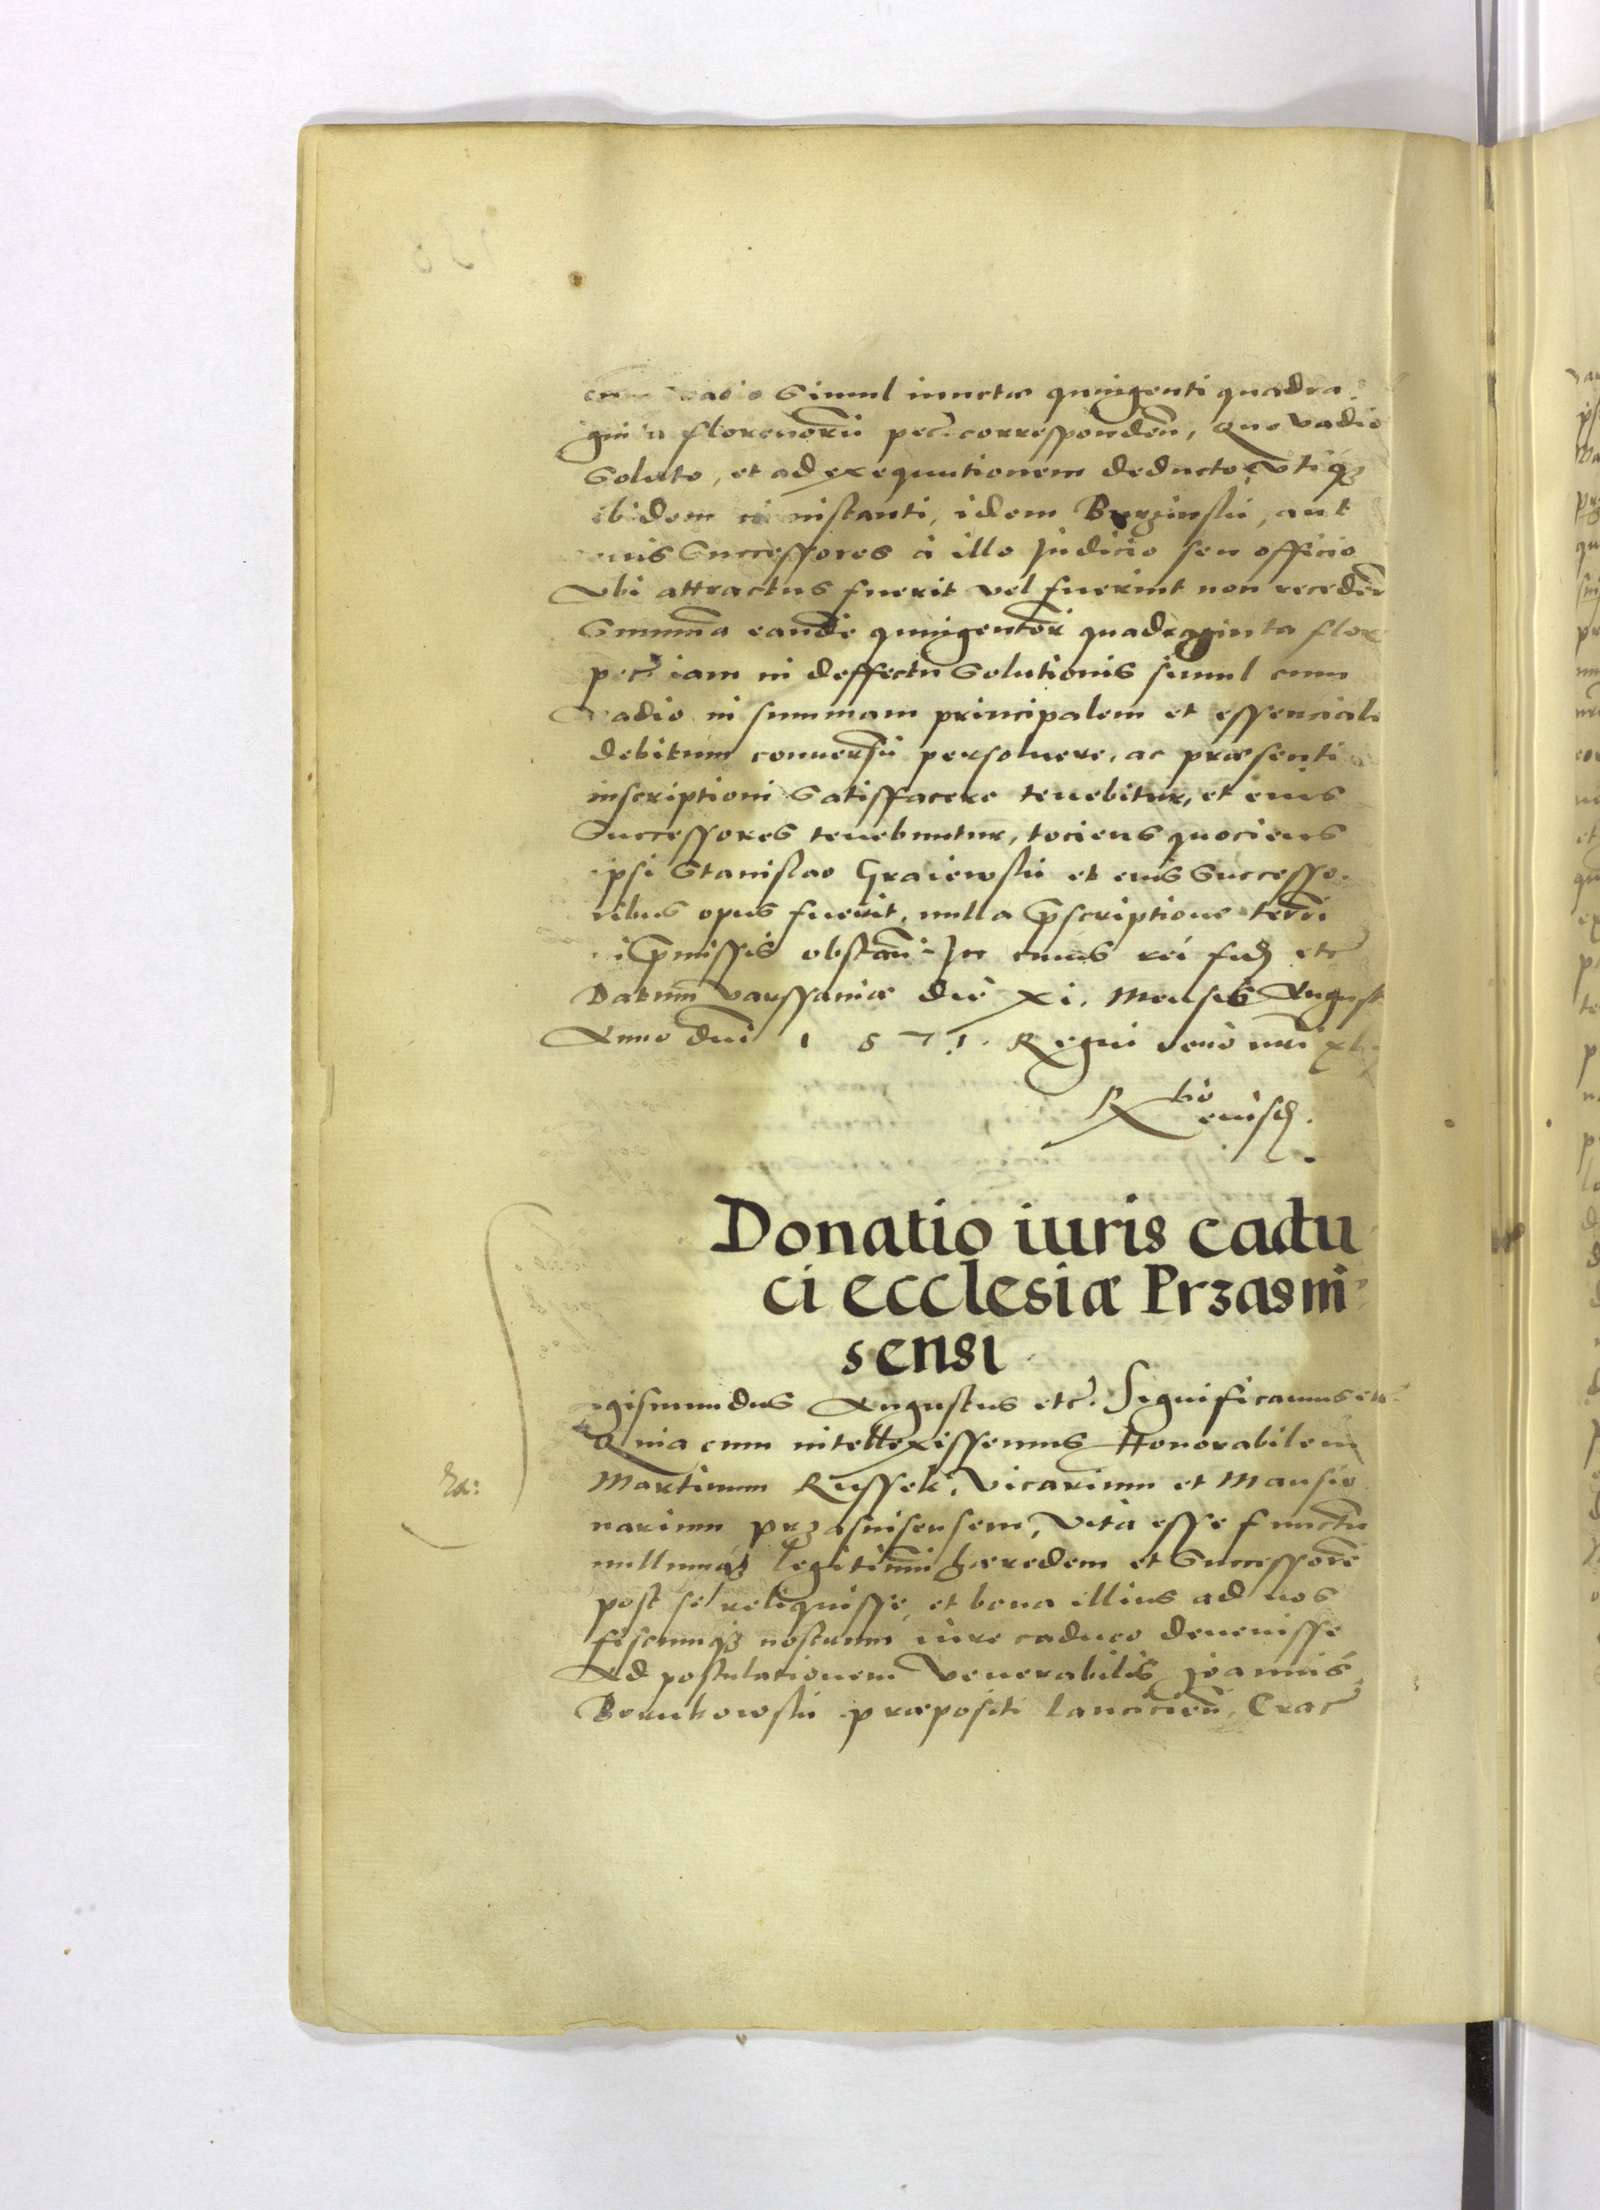 simul iunctae quingenti quadra-
ginta florenorū pec: corresponden̄, Quo vadio
Soluto, et ad exequutionem deducto, utiq3
ibidem instanti, idem Burzinskii, aut
eius Successores à illo Judicio seu officio
Vbi attractus fuerit vel fuerint non receden̄
Summā eandē quingentor̄ quadraginta flor
pec iam in deffectu Solutionis simul cum
vadio in summam principalem et essenciale
debitum conuersū persoluere, ac praesenti
inscriptioni Satisffacere tenebitur, et eius
Successores tenebuntur, tociens quociens
ipsi Stanislao Graiewskii et eius Successo-
ribus opus fuerit, nulla p̄scriptione terrī
p̄missis obstan̄. In cuius rei fid etc
Datum Varssauiae die xi. Mensis August
Anno dni 1571. Regni vero nrī xl
R tio eiusd.
Donatio iuris cadu
ci ecclesiæ Przasni
sensi
gismundus Augustus etc. Significamus etc
Quia cum intellexissemus Honorabilem
Martinum Russek, Vicarium et Mansio
narium przasnisensem, Vita esse functu
nullumq3 legitimū haeredem et Successorē
post se reliquisse, et bona illius ad nos
fiscumq3 nostrum iure caduco deuenisse
Ad postulationem Venerabilis Joannis
Borukowskii praepositi Lancicien̄, Crac